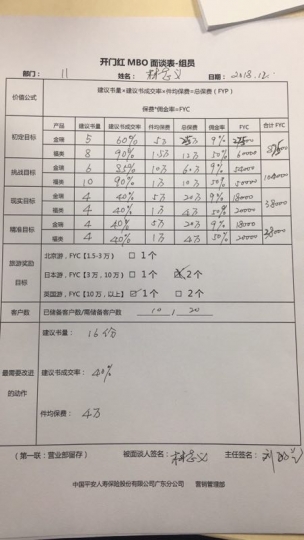 开门红 MBO 面谈表-组员
部门： 11 姓名： 林忠义 日期： 2018.12.
价值公式 建议书量*建议书成交率*件均保费=总保费（FYP）
保费*佣金率=FYC
产品 建议书量 建议书成交率 件均保费 总保费 佣金率 FYC 合计 FYC
初定目标 金瑞 5 60% 5万 9%
福类 8 90% 1.5万 12万 50% 60000
挑战目标 金瑞 6 35% 10万 60万 9% 54000 104000
福类 10 90% 1万 10万 50% 50000
现实目标 金瑞 4 40% 5万 20万 9% 18000 38000
福类 4 40% 1万 4万 50% 20000
瞄准目标 金瑞 4 40% 5万 20万 9% 18000
福类 4 40% 1万 4万 50% 20000
旅游奖励目标 北京游，FYC【1.5-3 万】 □ 1个
日本游，FYC【3 万，10 万】 □ 1个 2个
英国游，FYC【10 万，以上】 1个 □ 2个
客户数 已储备客户数/需储备客户数 10 / 20
最需要改进的动作
建议书量： 16个
建议书成交率： 40%
件均保费： 4万
（第一联：营业部留存） 被面谈人签名： 林忠义 主任签名：
中国平安人寿保险股份有限公司广东分公司 营销管理部